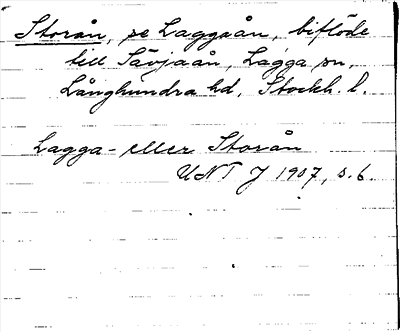 Storån, se Laggaån, biflöde
till Sävjaån, Lagga sn,
Långhundra hd, Stockh. l.
Lagga- eller Storån
UNT J 1907, s. 6.